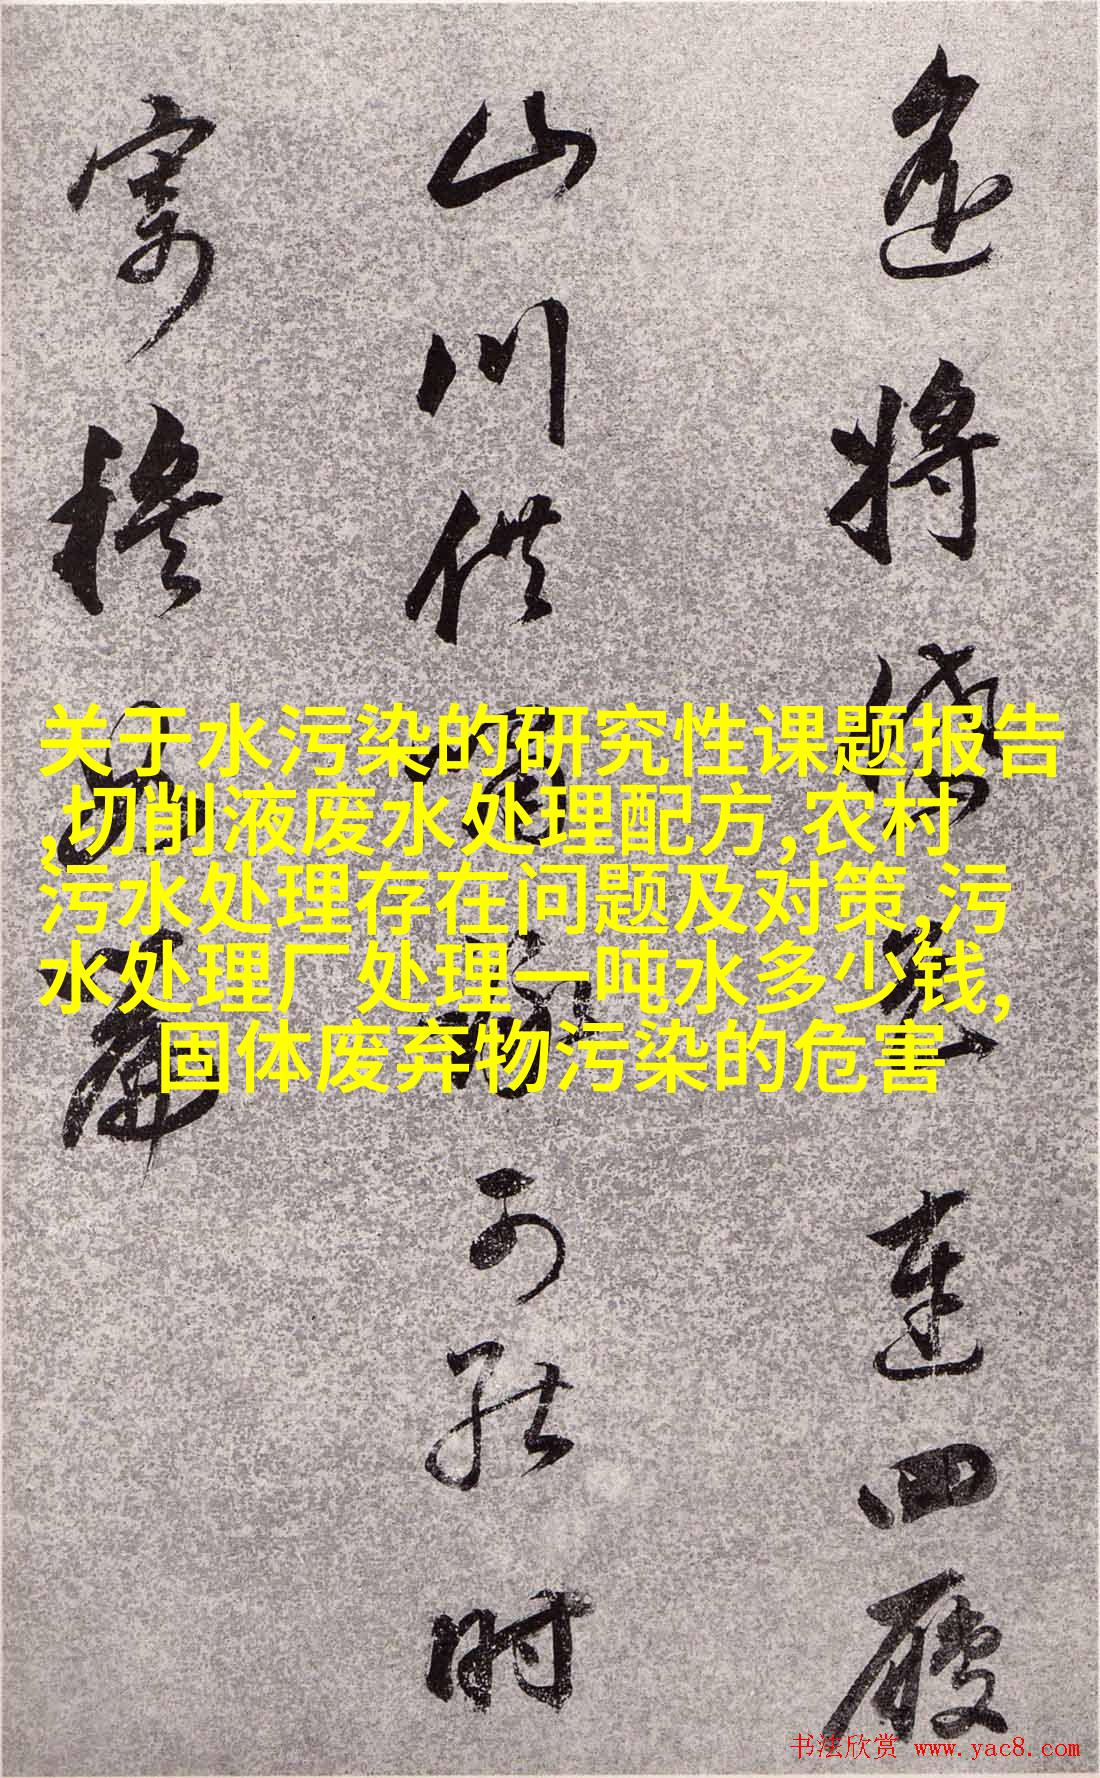 將連四
山川供可能时
寄穆
关于水污染的研究性课题报告
,切削液废水处理配方,农村
污水处理存在问题及对策,污
水处理厂处理一吨水多少钱,
固体废弃物污染的危害
书法欣赏 www.yac8.com